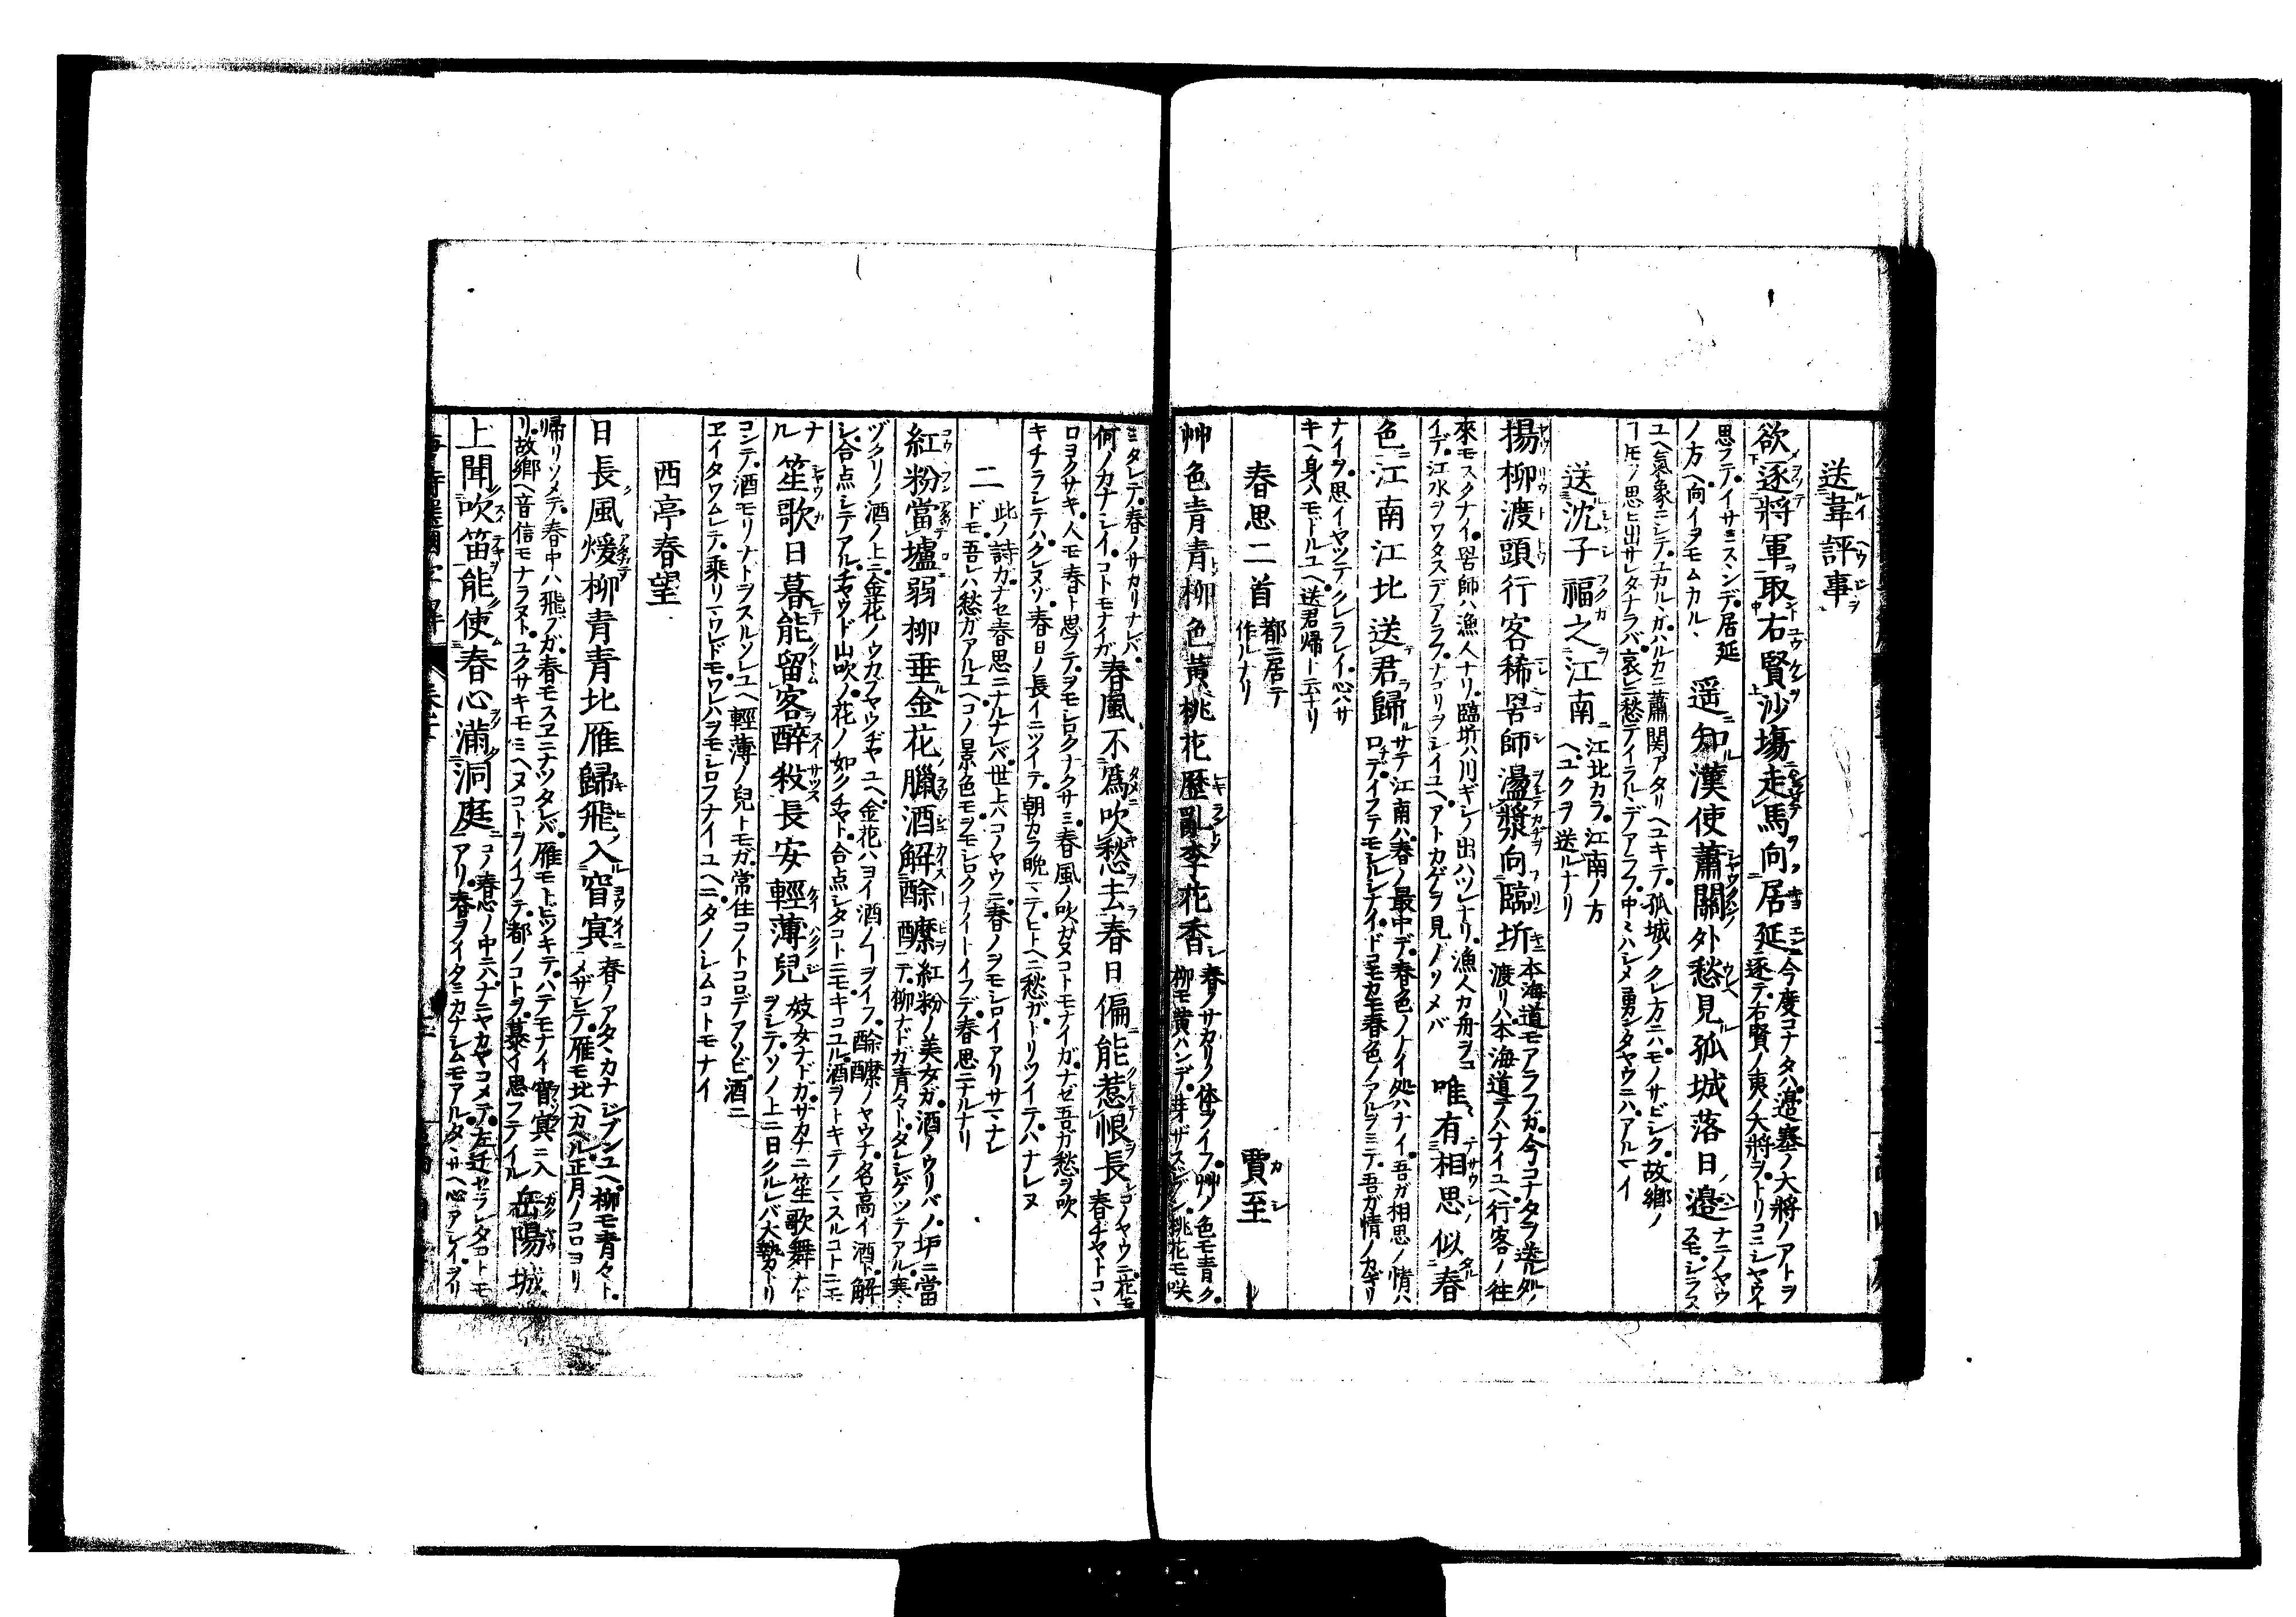 送韋評事
欲逐將軍取右賢沙場走馬向居延
今度コナタハ邉塞ノ大將ノアトヲ
逐テ右賢ノ夷ノ大將ヲトリコニシヤウト
思ラテイサミスンデ居延
ノ方ヘ向イヲモムカル
遥知漢使蕭關外愁見孤城落日邉
ナニノヤウ
スモシラス
ユヘ氣象ニシテユカルヽガハルカニ蕭関アタリヘユキテ孤城ノクレ方ニハモノサビシク故郷ノ
送沈子福之江南
江北カラ江南ノ方
ヘユクヲ送ルナリ
揚柳渡頭行客稀罟師盪漿向臨圻
本海道モアラフガ今コナタヲ送ルタルノ
渡リハ本海道テハナイユヘ行客ノ往
來モスクナイ罟師ハ漁人ナリ臨圻ハ川ギシノ出ハツレナリ漁人カ舟ヲコ
イデ江水ヲワタスデアラフナゴリヲシイユヘアトカゲヲ見ノソメバ
唯有相思似春
色江南江北送君歸
サテ江南ハ春ノ最中デ春色ノナイ処ハナイ吾ガ相思ノ情ハ
ナイヲ思イヤツテクレライ心ハサ
キヘ身ハモドルユヘ送君帰ト云ナリ
春思二首
都ニ居テ
作ルナリ
賈至
艸色青青柳色黃桃花歷亂李花香
春ノサカリノ体ヲイフ艸ノ色モ青ク
ミタレテ春ノサカリナレバ
何ノカナシイコトモナイガ
春風不爲吹愁去春日偏能惹恨長
コノヤウニ花モ
春ヂヤトコヽ
ロヨクサキ人モ春ト思フテヲモシロクナクサミ春風ノ吹ガヌコトモナイガナゼ吾ガ愁ヲ吹
キチラシテハクレヌゾ春日ノ長イニツイテ朝カラ晩マテヒトヘニ愁ガトリツイテハナレヌ
二
此ノ詩ガナセ春思ニナルナレバ世上ハコノヤウニ春ノヲモシロイアリサマナレ
ドモ吾レハ愁ガアルユヘコノ景色モヲモシロクナイトイフデ春思ニナルナリ
紅粉當壚弱柳垂金花臘酒解酴醾
紅粉ノ美女ガ酒ノウリバノ垆ニ當
テ柳ナドガ青々トタレシゲツテアル寒
ヅクリノ酒ノ上ニ金花ノウカブヤウヂヤユヘ金花ハヨイ酒ノヿヲイフ酴醾ノヤウナ名高イ酒ト解
シ合点シテアルチヤウド山吹ノ花ノ如クチヤト合点シタコトニモキコユル酒ヲトキテノマスルコトニモ
ナ
ル
笙歌日暮能留客醉殺長安輕薄兒
妓女ナドガサカナニ笙歌舞ナド
ヲシテソノ上ニ日クルレバ大勢カトリ
コンテ酒モリナトヲスルソレユヘ輕薄ノ兒トモガ常住コノトコロデアソビ酒ニ
ヱイタワムレテ乘リマワレドモワレハヲモシロフナイユヘニタノシムコトモナイ
西亭春望
日長風煖柳青青北雁歸飛入窅冥
春ノアタヽカナジブンユヘ柳モ青々ト
メザシテ雁モ北ヘカヘル正月ノコロヨリ
帰リソメテ春中ハ飛ブガ春モスヱニナツタレバ雁モトビツキテハテモナイ窅冥ニ入
リ故郷ヘ音信モナラヌトユクサキモミヘヌコトヲイフテ都ノコトヲ慕イ思フテイル
岳陽城
上聞吹笛能使春心滿洞庭
コノ春心ノ中ニハナニヤカヤコメテ左迁セラレタコトモ
アリ春ヲイタミカナシムモアルタヽサヘ心アシイヲリ